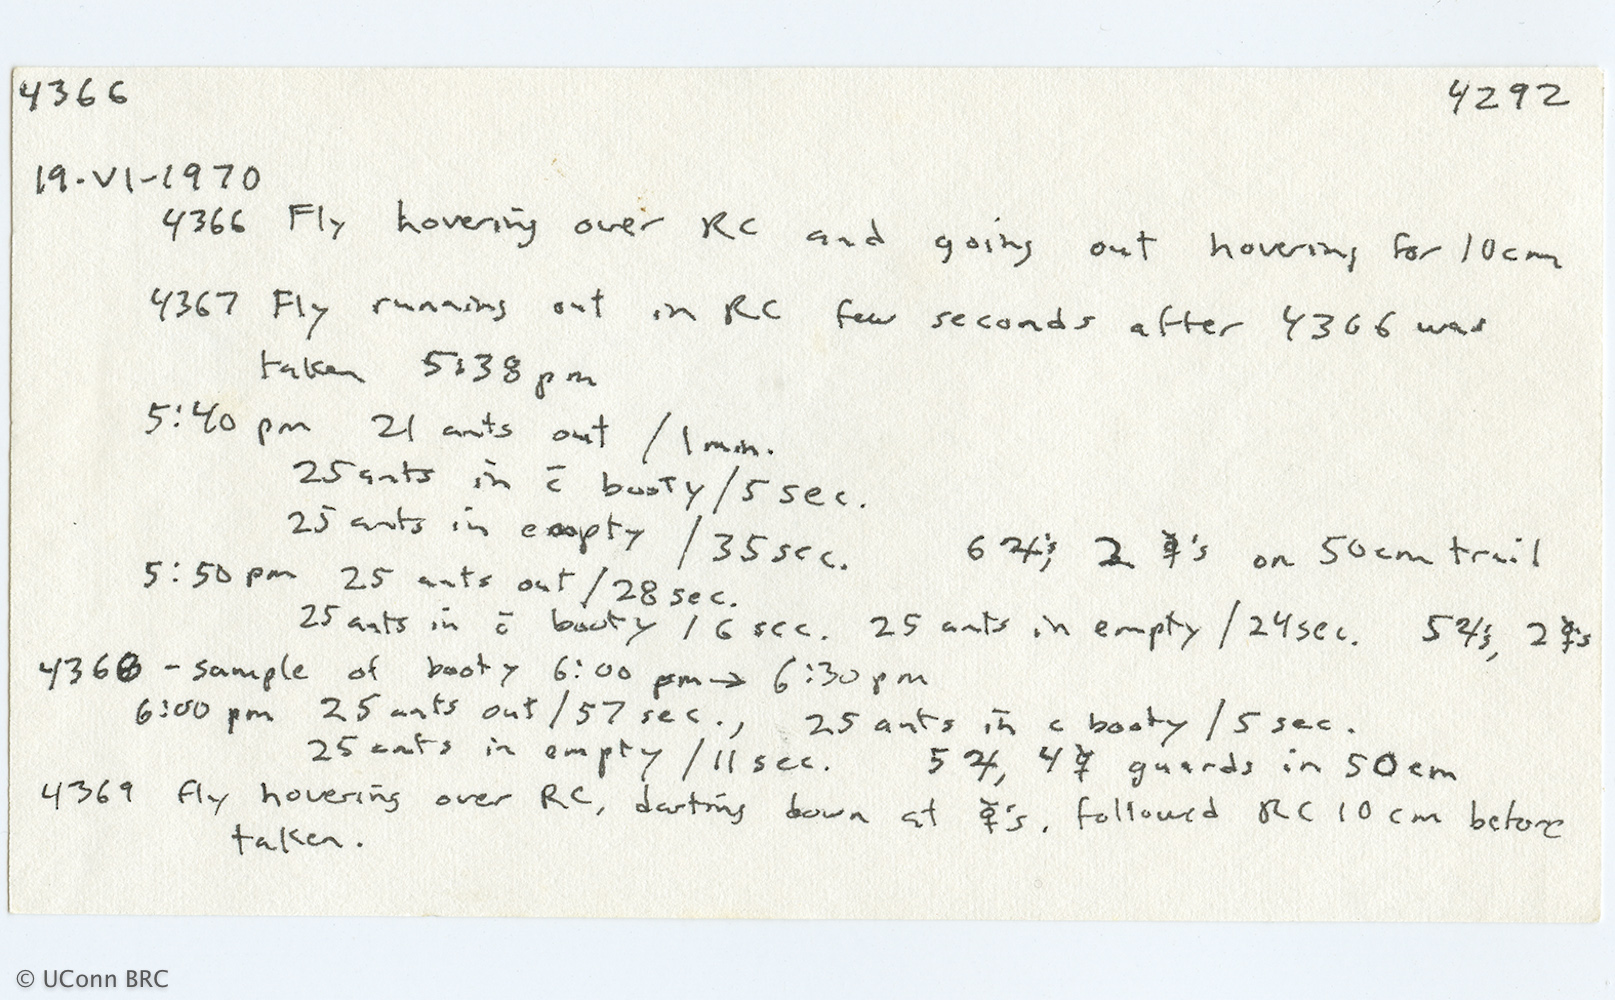 4366 4292
19-VI-1970
4366 Fly hovering over RC and going out hovering for 10cm
4367 Fly running out in RC few seconds after 4366 was
taken 5:38 pm
5:40 pm 21 ants out / 1 min.
25 ants in c̄ booty / 5 sec.
25 ants in empty / 35 sec. 6 ♃'s, 2 ☿'s on 50cm trail
5:50 pm 25 ants out / 28 sec.
25 ants in c̄ booty / 6 sec. 25 ants in empty / 24 sec. 5 ♃'s, 2 ☿'s
4368 - sample of booty 6:00 pm → 6:30 pm
6:00 pm 25 ants out / 57 sec., 25 ants in c booty / 5 sec.
25 ants in empty / 11 sec. 5 ♃, 4 ☿ guards in 50 cm
4369 Fly hovering over RC, darting down at ☿'s. Followed RC 10 cm before
taken.
© UConn BRC